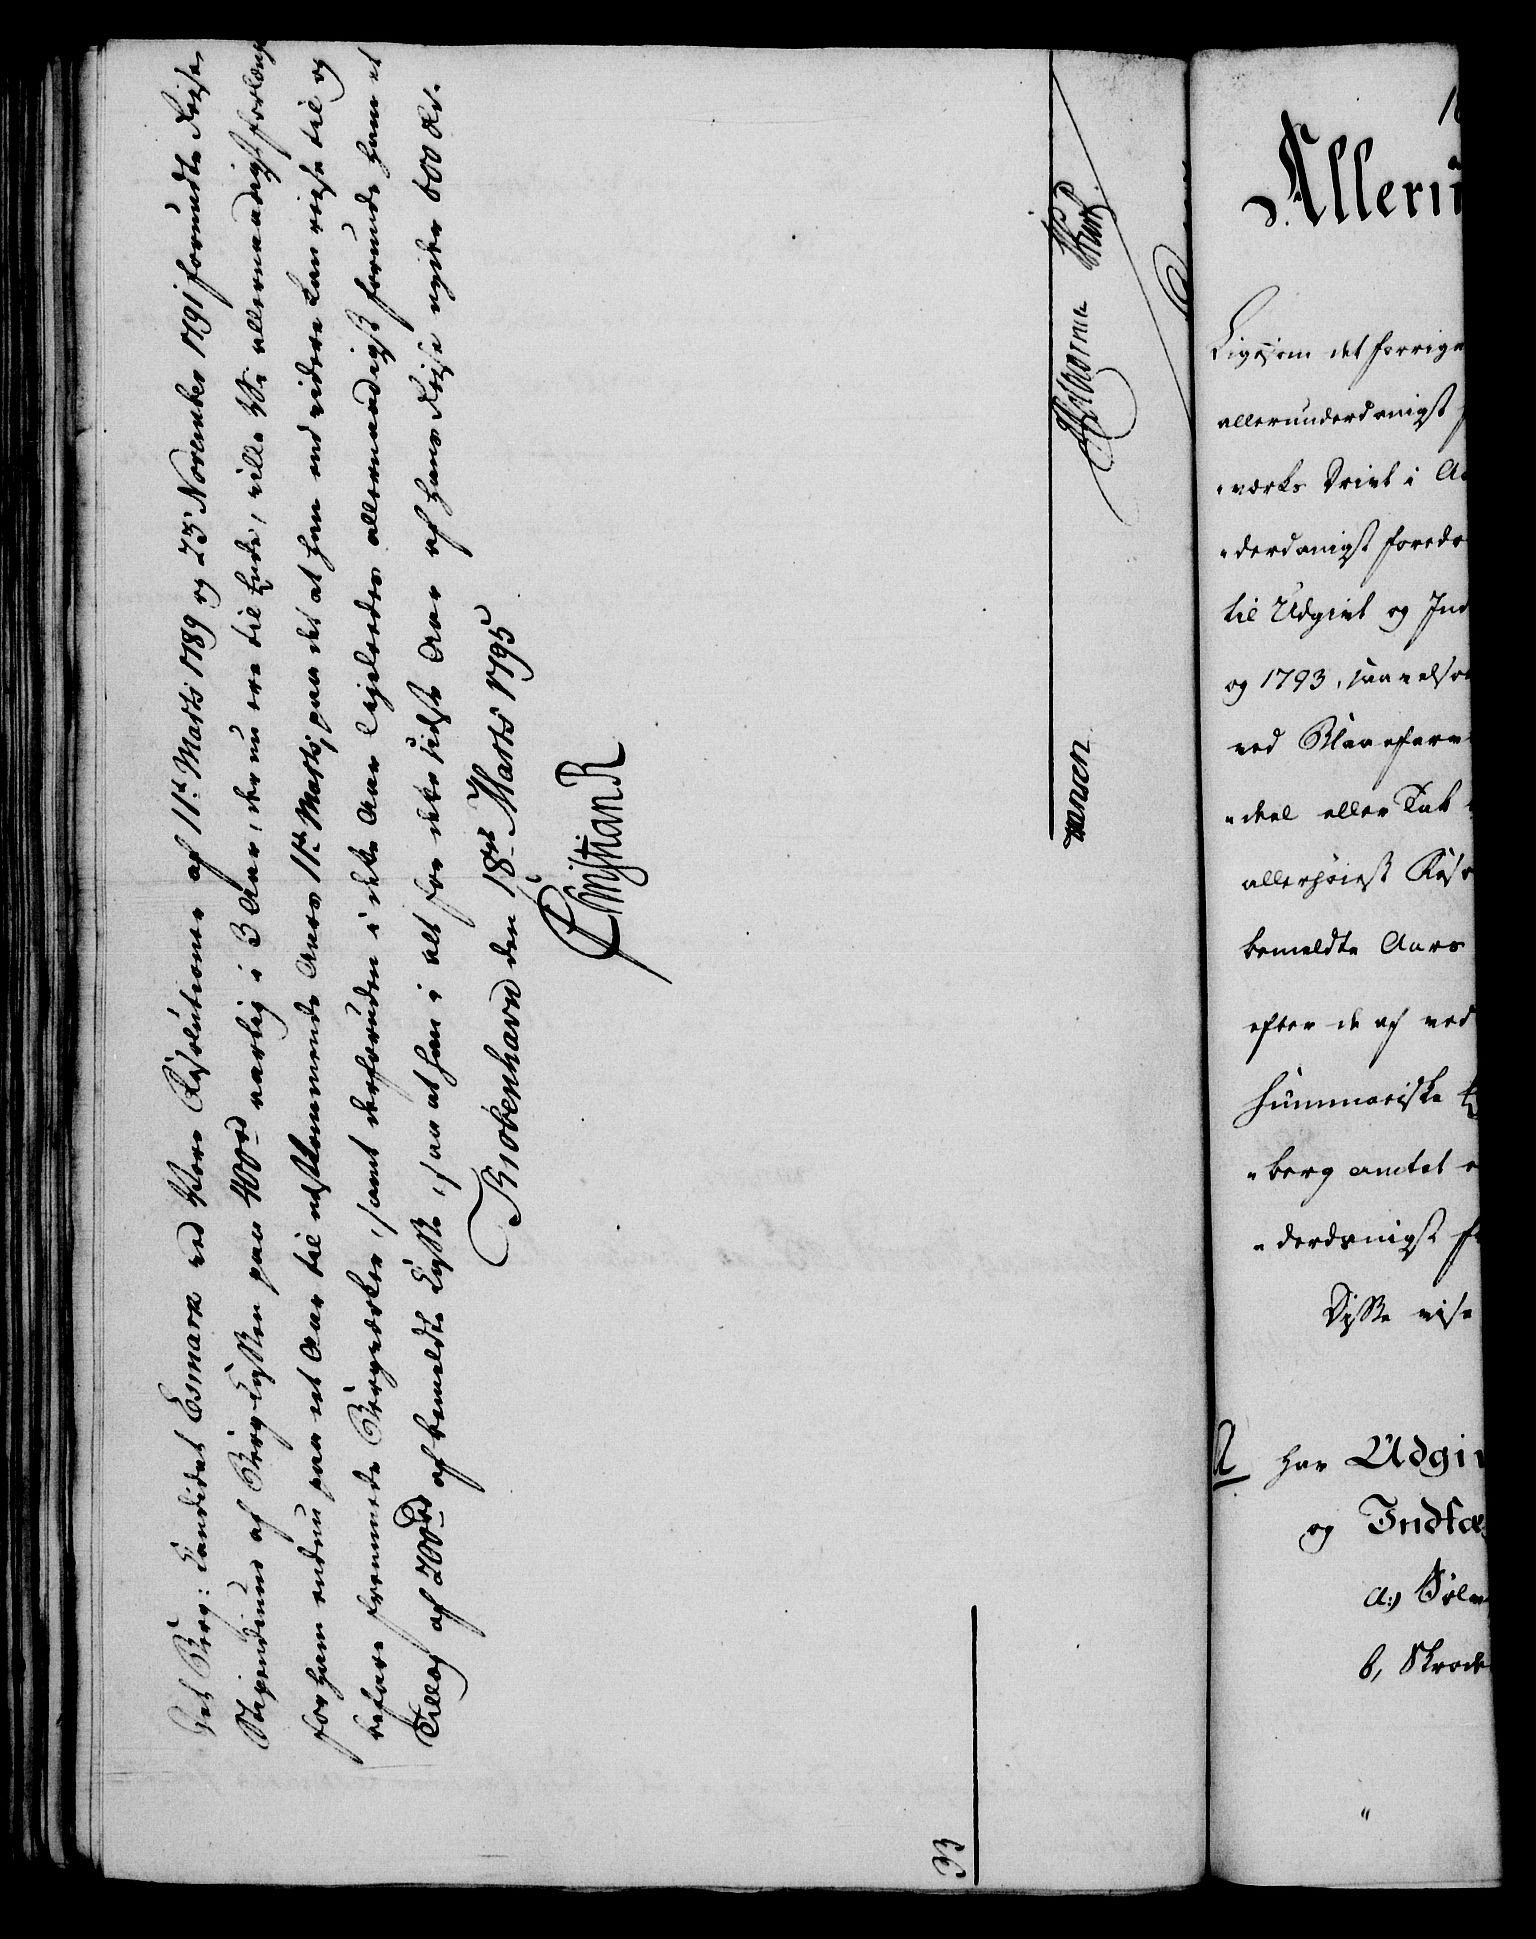 Det Berg: Candidat Esmark ved Vore Resolutioner af 11te Marts 1789 og 23 November 1791 forundte Reise
Stipendium af Berg Cassen paa 400 rd aarlig i 3 Aar, der nu ere til Ende, ville Vi allernaadigst forlænge
for ham endnu paa et Aar til næstkommende Aars 11te Marts, paa det at han end videre kan reise til og
befare fremmede Bergværker, samt desforuden i dette Aar ligeledes allernaadigst forunde ham et
Tillæg af 200 rd af bemeldte Casse, saa at han i alt for dette sidste Aar af hans Reise nyder 600 Rd.
Kiøbenhavn den 18de Marts 1795
Christian R
Hansen
33
Alleru
Ligesom det forrige
allerunderdanigst
værks Drivt i
derdanigst foredr
til Udgivt og Ind
og 1793, saavelso
ved Blaafarve
deel eller Tab
allerhøiest Reso
bemeldte Aars
efter de af ved
Summariske
berg amtet
derdanigst f
Disse vise
A har Udgiv
og Indtæ
a:) Sølv
b, Skrede
"